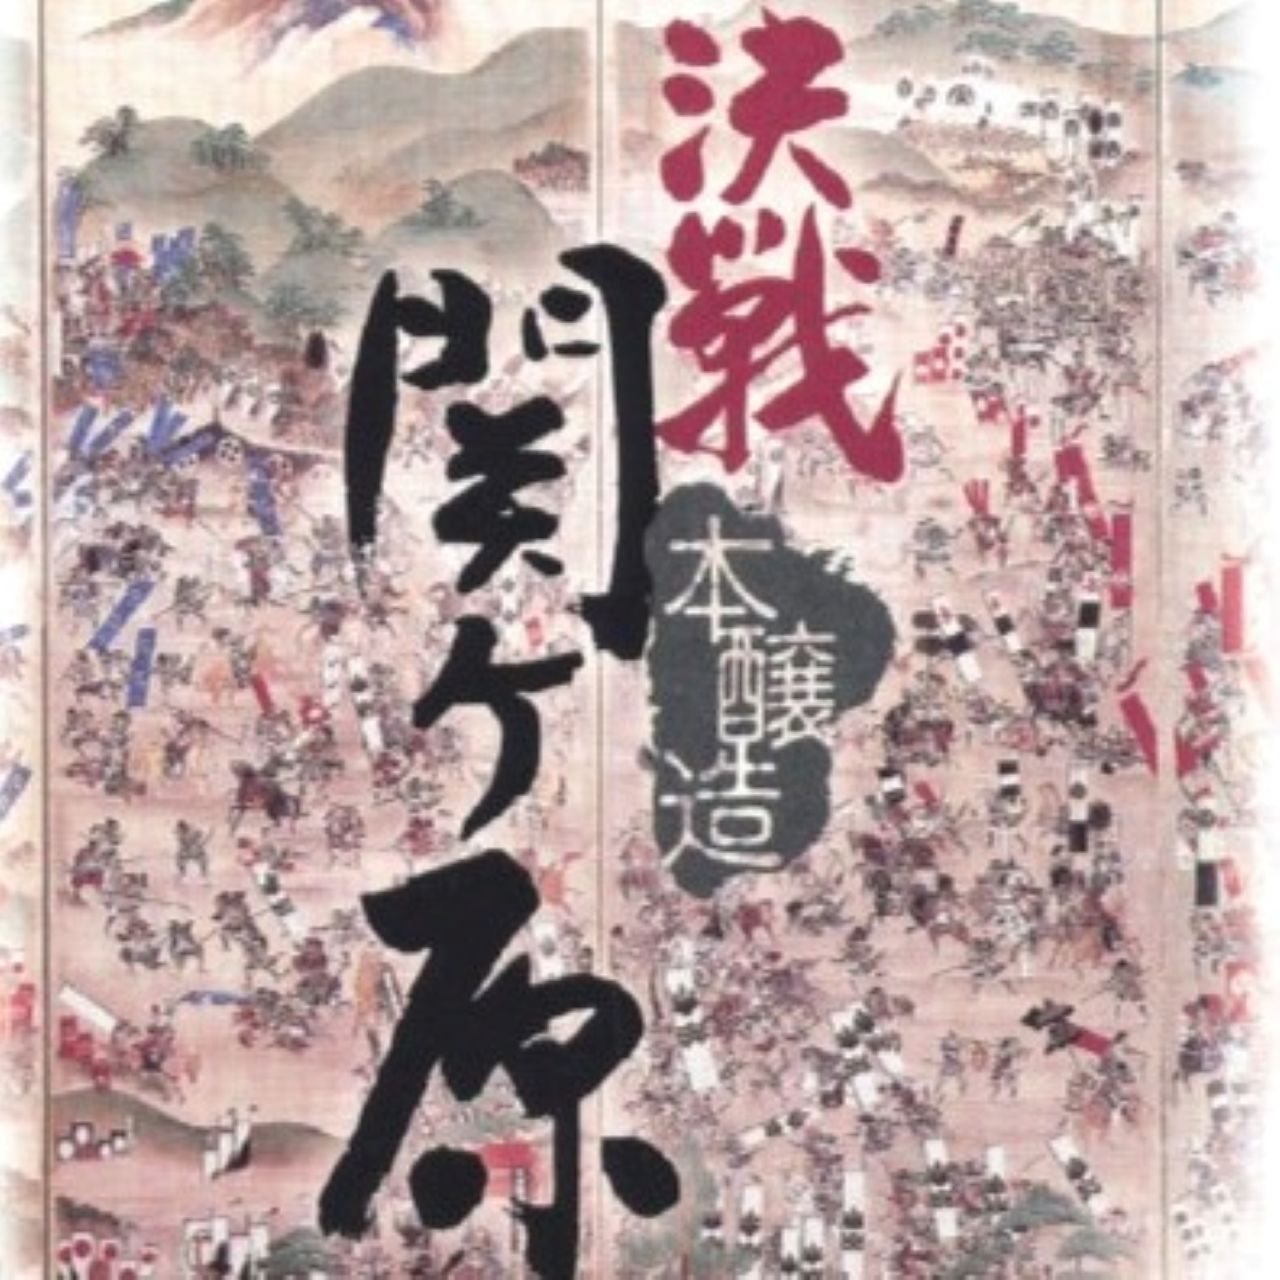 決戦
関ヶ原
本醸造